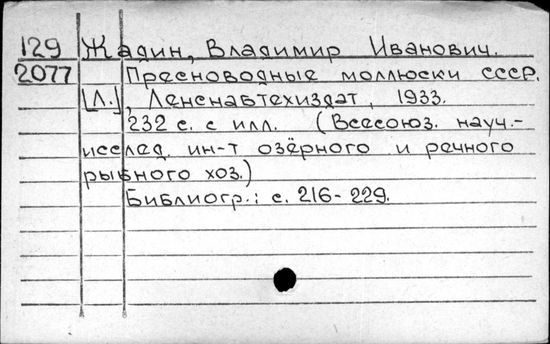 129 Жадин, Владимир Иванович.
2077 Пресноводные моллюски СССР.
[Л.], Ленснабтехиздат, 1933.
232 с. с илл. (Всесоюз. науч.-
исслед. ин-т озёрного и речного
рыбного хоз.)
Библиогр.: с. 216-229.